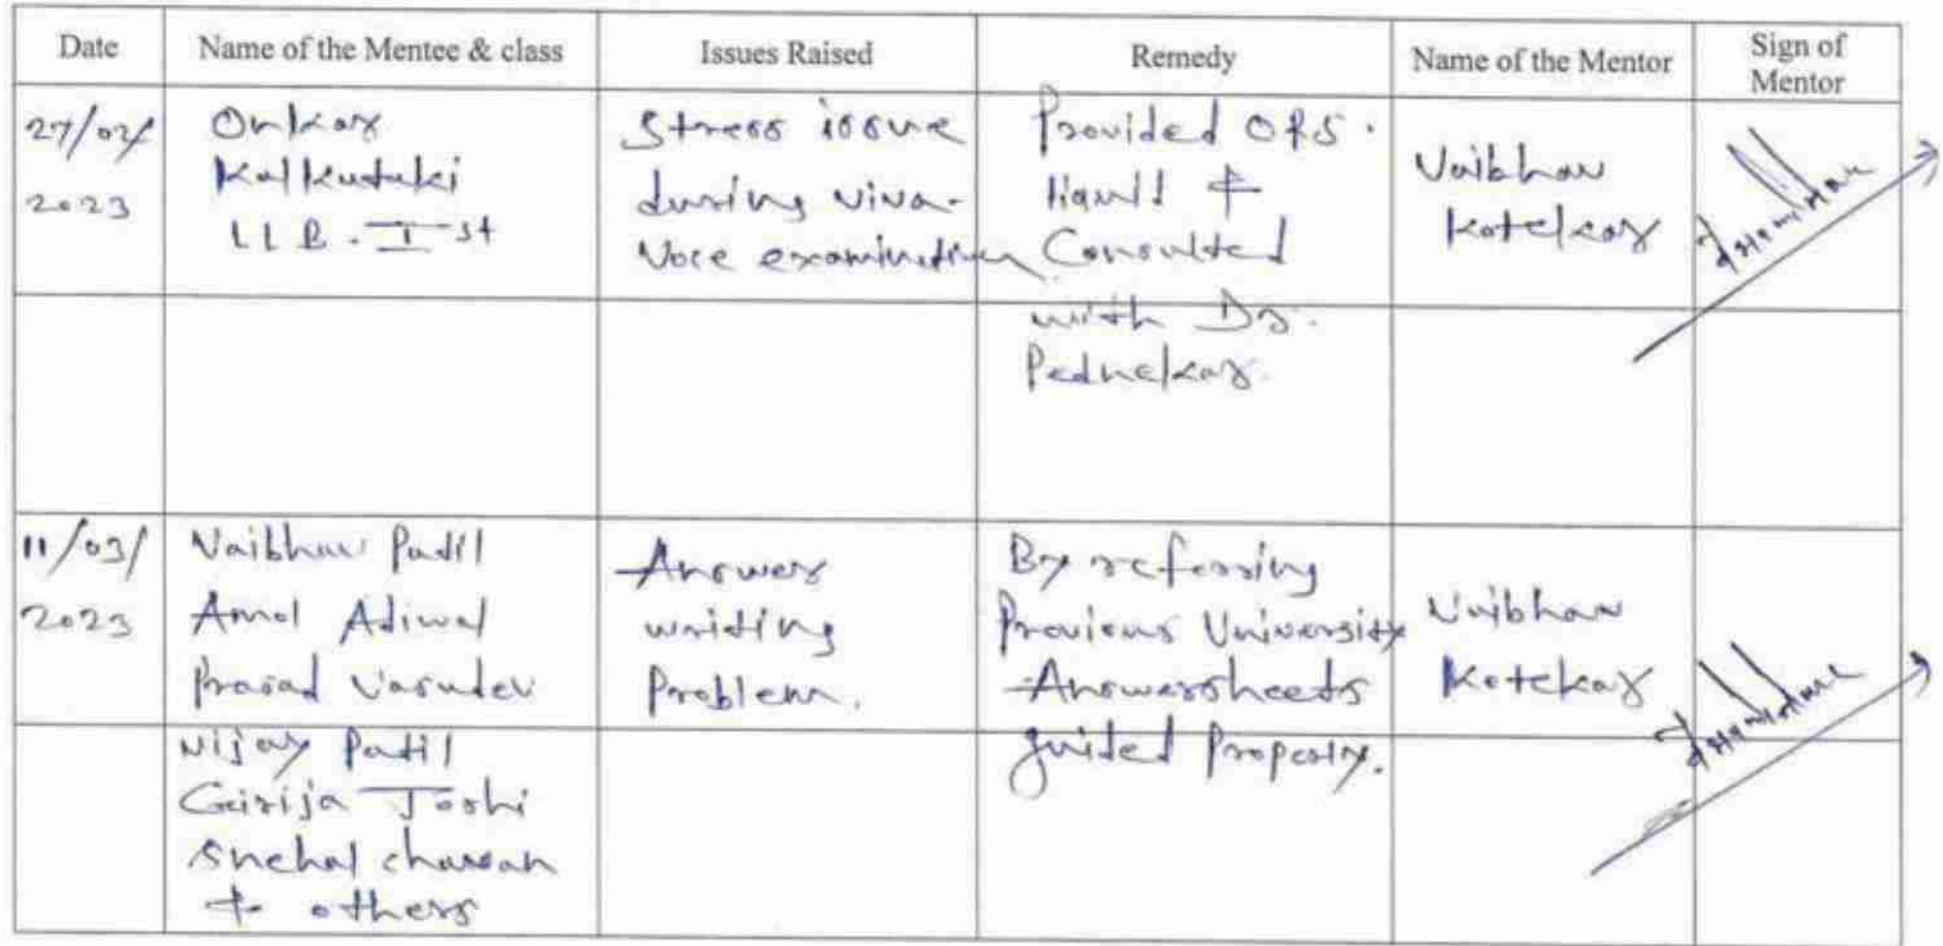 Date Name of the Mentee & class Issues Raised Remedy Name of the Mentor Sign of Mentor
27/02/
2023
Onkar
Kalkutaki
LLB. I st
Stress issue
during viva-
Voce examination
Provided ORS.
liquid &
Consulted
with Dr.
Pednekar.
Vaibhav
Kotekar
11/03/
2023
Vaibhav Patil
Amol Adiwal
Prasad Vasudev
Vijay Patil
Girija Joshi
Snehal chavan
& others
Answer
writing
Problem.
By referring
Previous University
Answersheets
guided Properly.
Vaibhav
Kotekar